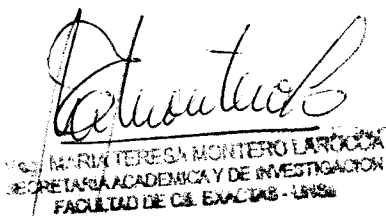 MARIA TERESA MONTERO LAROCCA
SECRETARIA ACADEMICA Y DE INVESTIGACION
FACULTAD DE CS. EXACTAS - UNSa